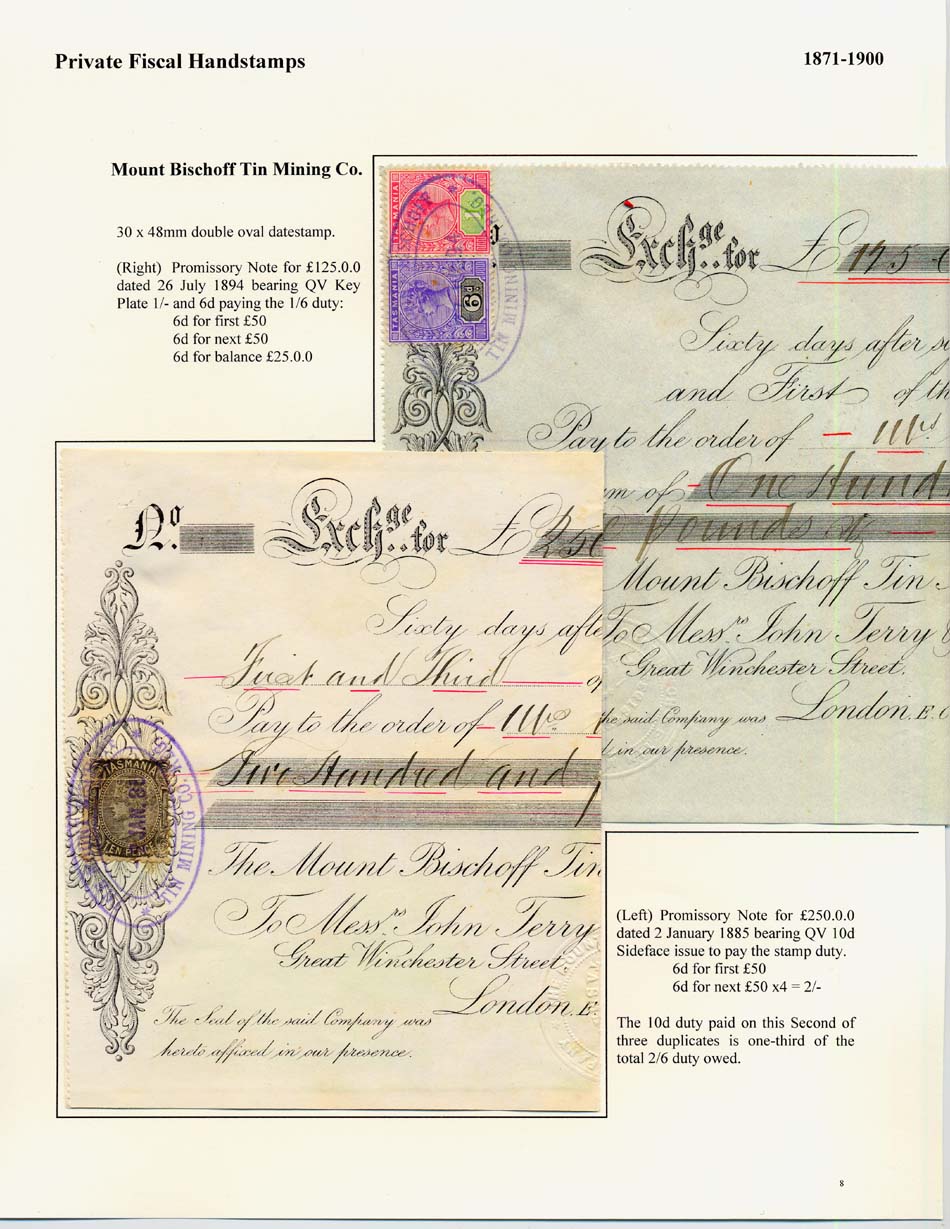 Private Fiscal Handstamps
1871-1900
Mount Bischoff Tin Mining Co.
30 x 48mm double oval datestamp.
(Right) Promissory Note for £125.0.0
dated 26 July 1894 bearing QV Key
Plate 1/- and 6d paying the 1/6 duty:
6d for first £50
6d for next £50
6d for balance £25.0.0
TASMANIA
TASMANIA
6d
TIN MINING
Exchge for £ 195
Sixty days after
and First of
Pay to the order of
of One Hund
Pounds
Mount Bischoff Tin
To Messrs John Terry
Great Winchester Street.
London. E.
the said Company was
in our presence.
No. Exchge for £ 250
Sixty days afte
First and Third
Pay to the order of
Two Hundred and
TASMANIA
TEN PENCE
TIN MINING CO.
The Mount Bischoff Tin
To Messrs John Terry
Great Winchester Street.
London. E.
The Seal of the said Company was
hereto affixed in our presence.
(Left) Promissory Note for £250.0.0
dated 2 January 1885 bearing QV 10d
Sideface issue to pay the stamp duty.
6d for first £50
6d for next £50 x4 = 2/-
The 10d duty paid on this Second of
three duplicates is one-third of the
total 2/6 duty owed.
8